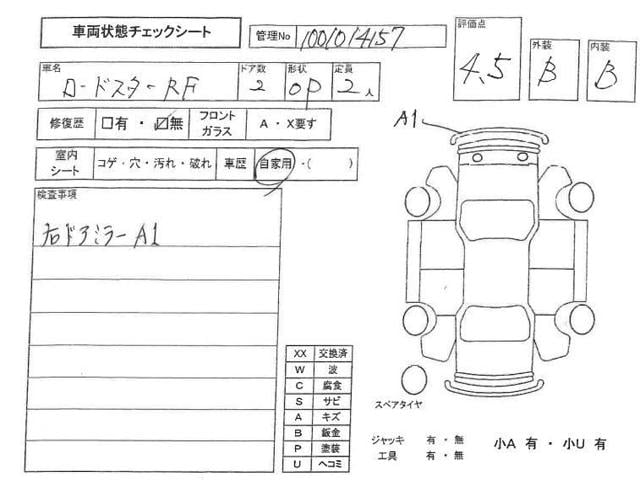 車両状態チェックシート
管理No 1001014157
評価点 4.5
外装 B
内装 B
車名 ロードスターRF
ドア数 2
形状 OP
定員 2人
修復歴 □有・☑無
フロントガラス A・X要す
室内シート コゲ・穴・汚れ・破れ
車歴 自家用・( )
A1
検査事項
右ドアミラーA1
XX 交換済
W 波
C 腐食
S サビ
A キズ
B 鈑金
P 塗装
U ヘコミ
スペアタイヤ
ジャッキ 有・無
工具 有・無
小A 有・小U 有